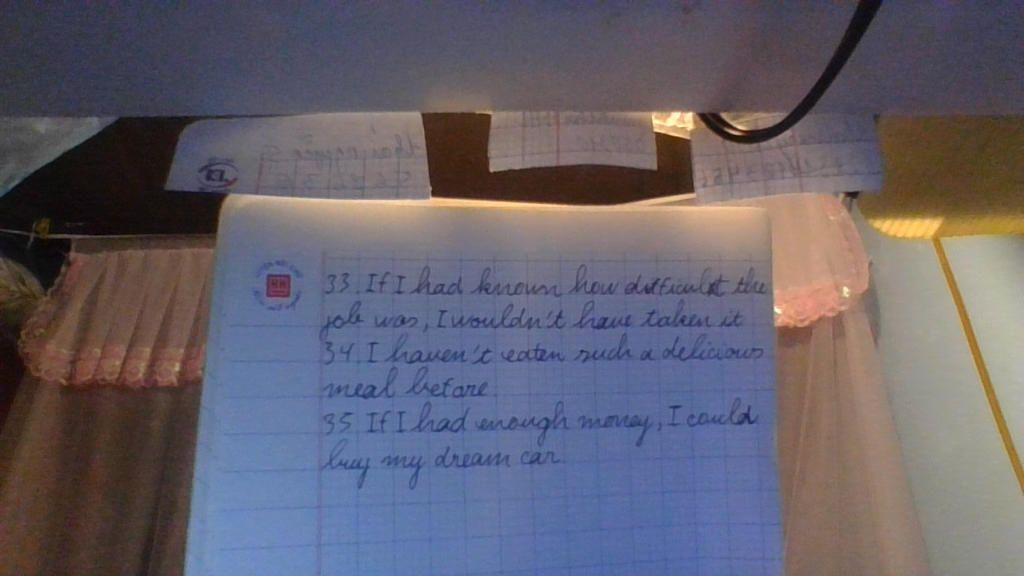 33. If I had known how difficult the
job was, I wouldn't have taken it
34. I haven't eaten such a delicious
meal before.
35 If I had enough money, I could
buy my dream car.